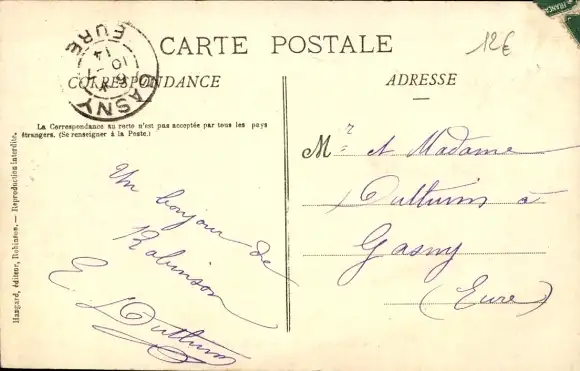 CARTE POSTALE
12€
GASNY
EURE
CORRESPONDANCE
ADRESSE
La Correspondance au recto n'est pas acceptée par tous les pays
étrangers. (Se renseigner à la Poste.)
Hangard, éditeur, Robinson. — Reproduction interdite.
Un bonjour de
Robinson
E
Mr et Madame
à
Gasny
(Eure)